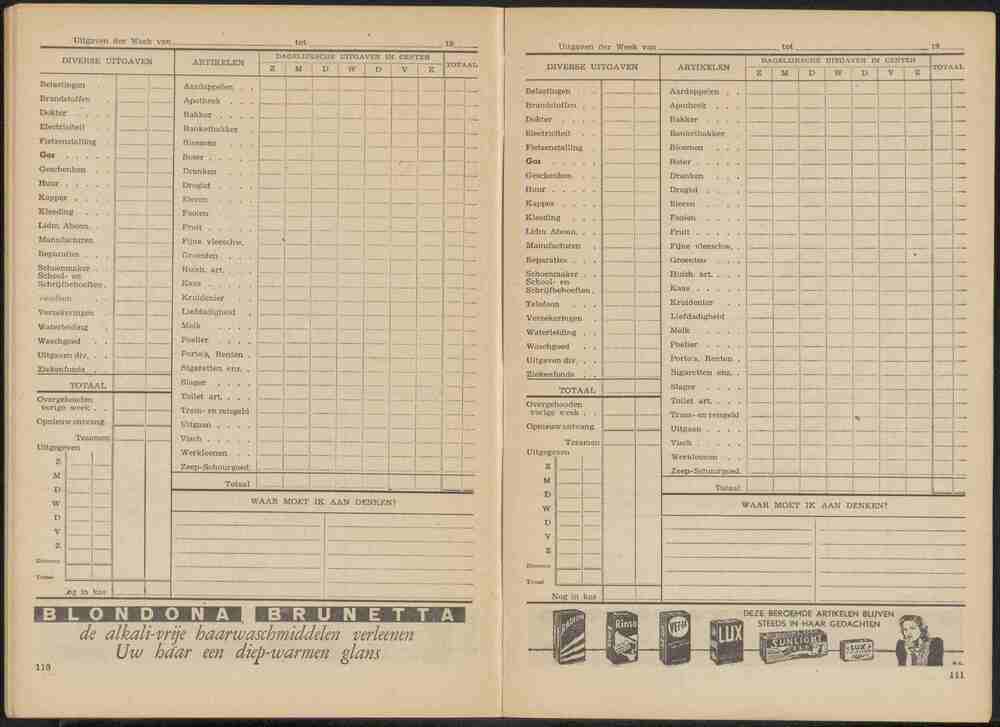 Uitgaven der Week van tot 19
DIVERSE UITGAVEN
Belastingen
Brandstoffen
Dokter
Electriciteit
Fietsenstalling
Gas
Geschenken
Huur
Kapper
Kleeding
Lidm. Abonn.
Manufacturen
Reparaties
Schoenmaker
School- en
Schrijfbehoeften
Telefoon
Verzekeringen
Waterleiding
Waschgoed
Uitgaven div.
Ziekenfonds
TOTAAL
Overgehouden
vorige week
Opnieuw ontvang.
Tezamen
Uitgegeven
Z
M
D
W
D
V
Z
Diversen
Totaal
Nog in kas
ARTIKELEN
DAGELIJKSCHE UITGAVEN IN CENTEN
TOTAAL
Z M D W D V Z
Aardappelen
Apotheek
Bakker
Banketbakker
Bloemen
Boter
Dranken
Drogist
Eieren
Fooien
Fruit
Fijne vleeschw.
Groenten
Huish. art.
Kaas
Kruidenier
Liefdadigheid
Melk
Poelier
Porto's, Renten
Sigaretten enz.
Slager
Toilet art.
Tram- en reisgeld
Uitgaan
Visch
Werkloonen
Zeep-Schuurgoed
Totaal
WAAR MOET IK AAN DENKEN?
BLONDONA BRUNETTA
de alkali-vrije haarwaschmiddelen verleenen
Uw haar een diep-warmen glans
110
Uitgaven der Week van tot 19
DIVERSE UITGAVEN
Belastingen
Brandstoffen
Dokter
Electriciteit
Fietsenstalling
Gas
Geschenken
Huur
Kapper
Kleeding
Lidm. Abonn.
Manufacturen
Reparaties
Schoenmaker
School- en
Schrijfbehoeften
Telefoon
Verzekeringen
Waterleiding
Waschgoed
Uitgaven div.
Ziekenfonds
TOTAAL
Overgehouden
vorige week
Opnieuw ontvang.
Tezamen
Uitgegeven
Z
M
D
W
D
V
Z
Diversen
Totaal
Nog in kas
ARTIKELEN
DAGELIJKSCHE UITGAVEN IN CENTEN
TOTAAL
Z M D W D V Z
Aardappelen
Apotheek
Bakker
Banketbakker
Bloemen
Boter
Dranken
Drogist
Eieren
Fooien
Fruit
Fijne vleeschw.
Groenten
Huish. art.
Kaas
Kruidenier
Liefdadigheid
Melk
Poelier
Porto's, Renten
Sigaretten enz.
Slager
Toilet art.
Tram- en reisgeld
Uitgaan
Visch
Werkloonen
Zeep-Schuurgoed
Totaal
WAAR MOET IK AAN DENKEN?
RADION
Rinso
VIM
LUX
DEZE BEROEMDE ARTIKELEN BLIJVEN
STEEDS IN HAAR GEDACHTEN
SUNLIGHT
LUX
111